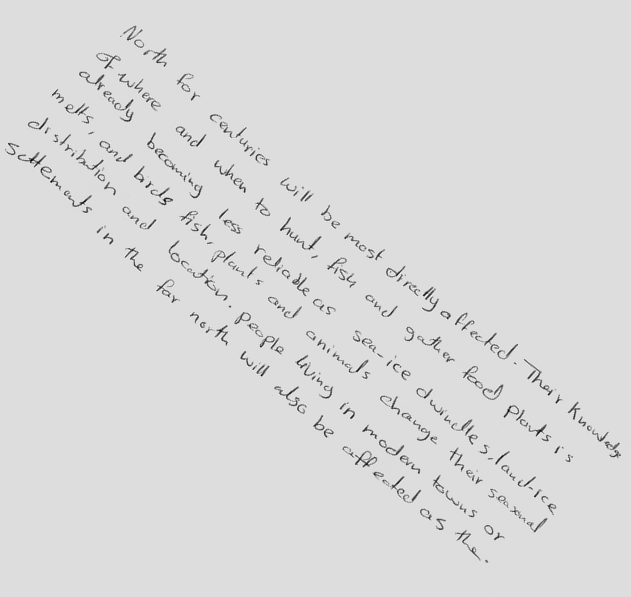 North for centuries will be most directly affected. Their Knowledge
of where and when to hunt, fish and gather food plants is
already becoming less reliable as sea-ice dwindles, land-ice
melts, and birds fish, plants and animals change their seasonal
distribution and location. People living in modern towns or
settlements in the far north will also be affected as the.